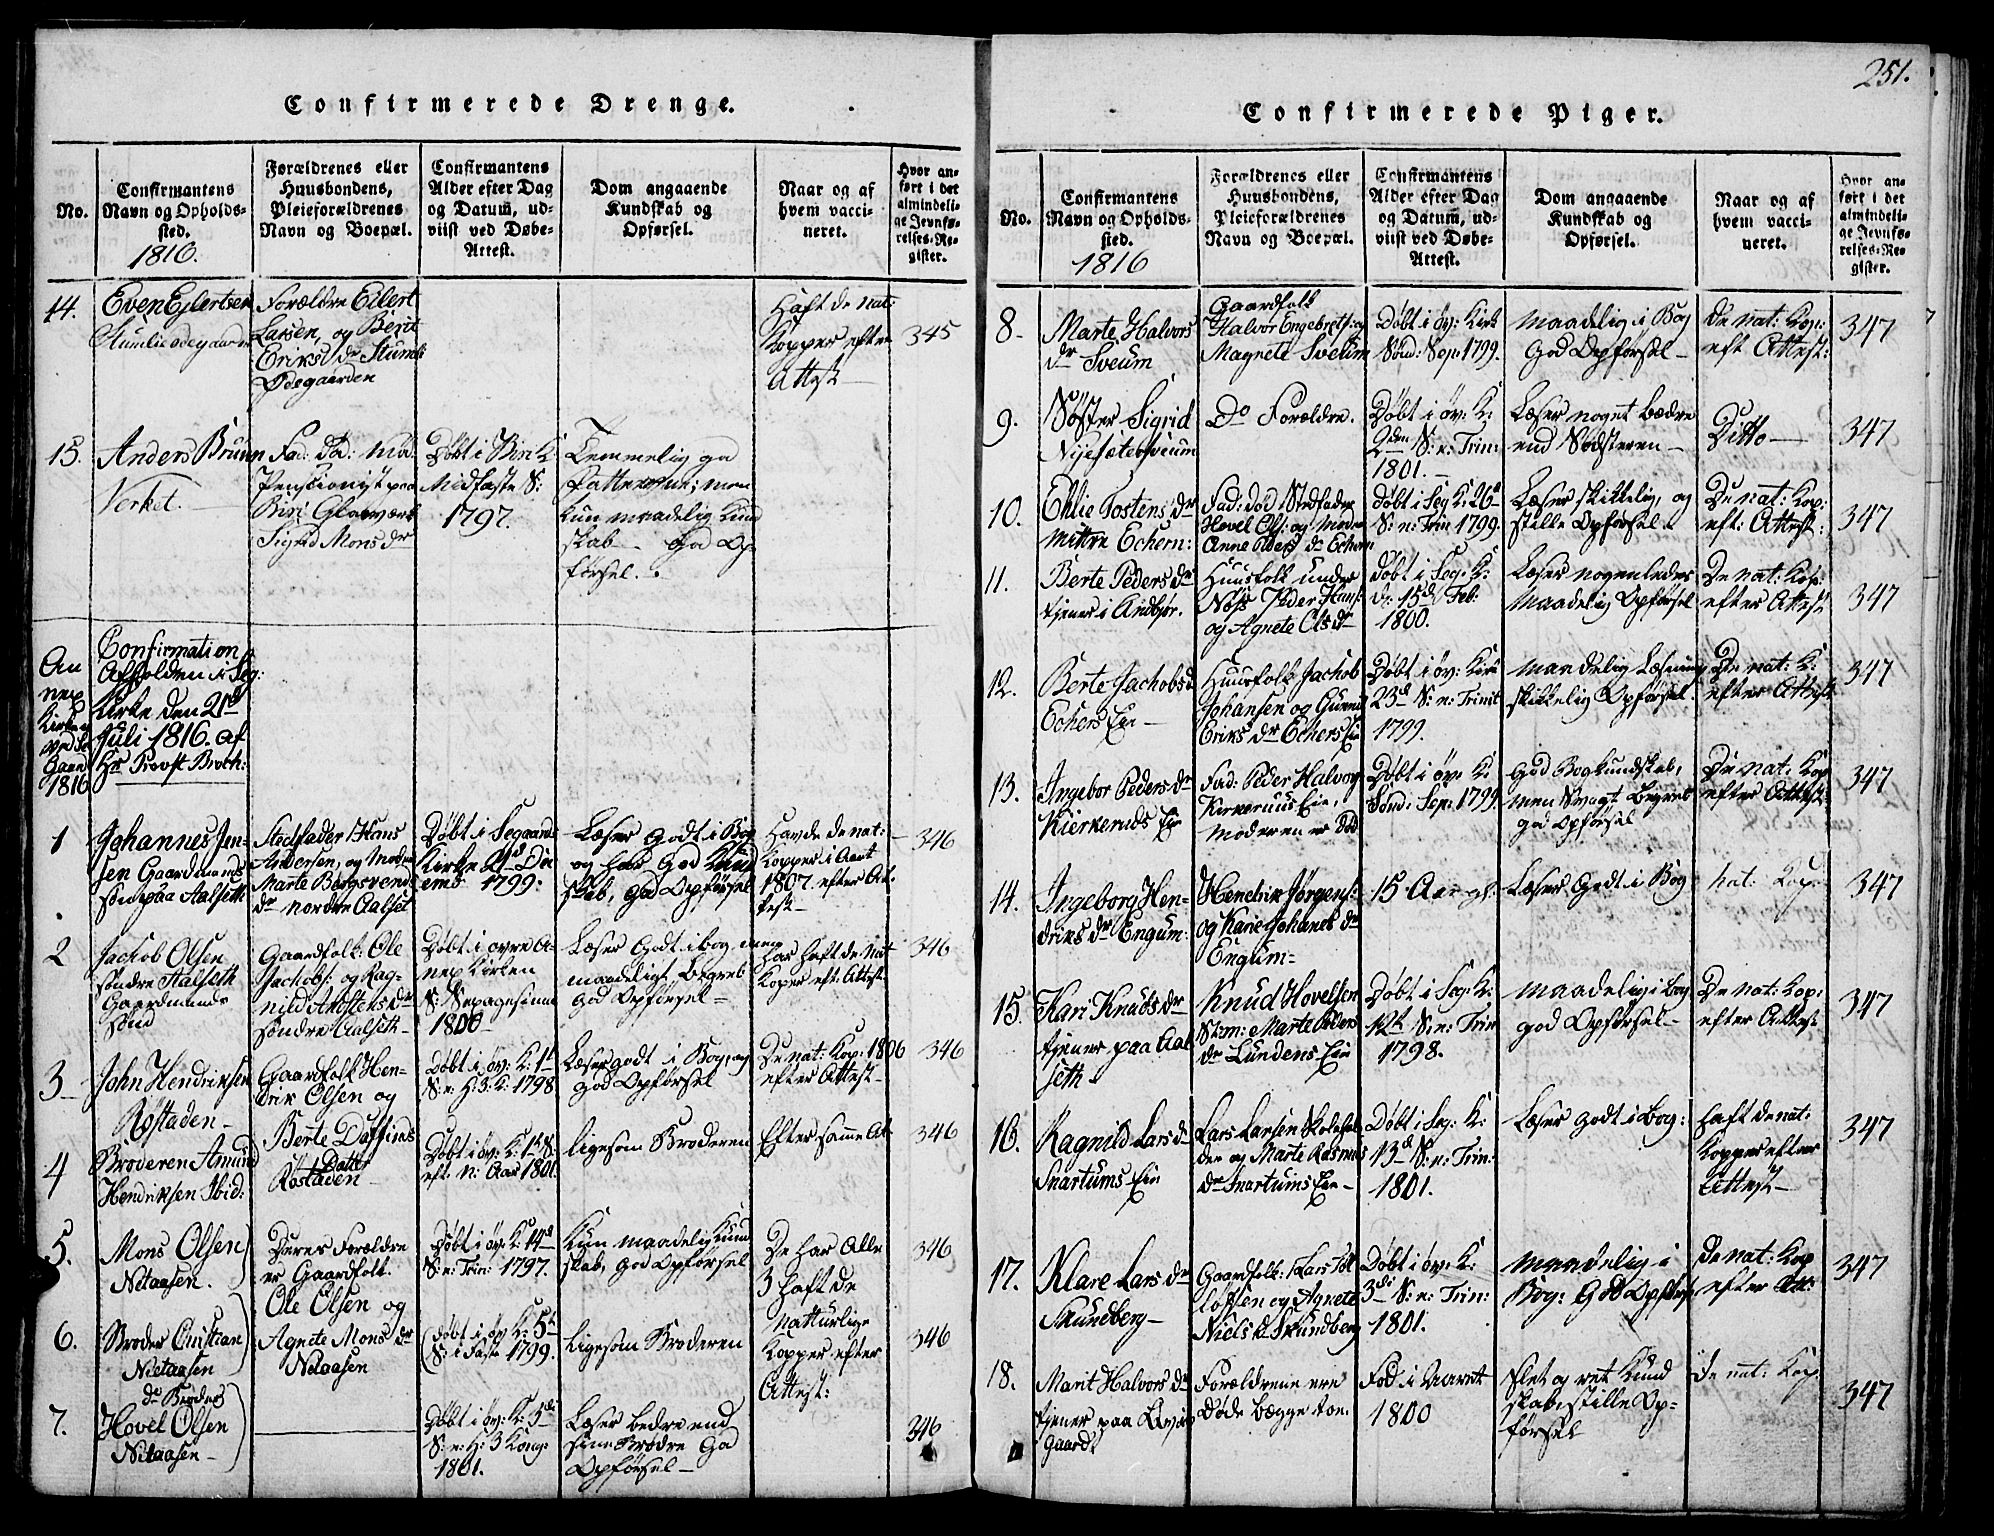 251.
Confirmerede Drenge.
No.
Confirmantens
Navn og Opholds-
sted.
1816.
Forældrenes eller
Huusbondens,
Pleieforældrenes
Navn og Boepæl.
Confirmantens
Alder efter Dag
og Datum, ud-
viist ved Døbe-
Attest.
Dom angaaende
Kundskab og
Opførsel.
Naar og af
hvem vacci-
neret.
Hvor an-
ført i det
almindeli-
ge Jevnfø-
relses-Re-
gister.
14.
Even Ejlertsen
Stumlie ødegaarden
Forældre Eilert
Larsen, og Berit
Eriks dr Stumli
Ødegaarden
Haft de nat:
Kopper efter
Attest
345
15.
Anders Bruun
Verket.
Fad: død: Mod:
Pensionist paa
Biri Glasværk
Sigrid Mons dr
Døbt i Biri K
Midfaste S:
1797.
Temmelig god
Fatteevne; men
kun maadelig Kund
skab. God Op-
førsel.
An
nex
Kirken
ved Se
gaard
1816
Confirmation
Afholden i Seg:
Kirke den 21d
Juli 1816. af
Hr Provst Broch:
1
Johannes Jen-
sen Gaardmands
søn paa Aalseth
Stedfader Hans
Andersen, og Moder
Marte Bergsvends
dr nordre Aalset
Døbt i Segaards
Kirke 21d De
emb 1799.
Læser Godt i Bog
og har God Kund
skab, god Opførsel
Havde de nat:
Kopper i Aaret
1807. efter At-
test
346
2
Jachob Olsen
søndre Aalseth
Gaardmands
sønd
Gaardfolk: Ole
Jachobs: og Rag-
nild Amstens dr
søndre Aalseth
Døbt i øvre A-
nex Kirken
S: Sepagesima
1800
Læser Godt i bog, men
maadeligt Begreb
God Opførsel
har haft de Nat
Koper eft. Attest
346
3
John Hendriksen
Røstaden
Gaardfolk Hen-
drik Olsen og
Berte Daffins
Datter
Røstaden
Døbt i øv: K: 1t
S: e: H: 3: K: 1798
Læser godt i Bog, og
god Opførsel
De nat: Kop: 1806
efter Attest
346
4
Broderen Amund
Hendriksen Ibid:
Døbt i øv: K: 1t S:
eft. n: Aar 1801.
ligesom Broderen
Efter samme At
346
5.
Mons Olsen
Netaasen.
Deres Forældre
er Gaardfolk
Ole Olsen og
Agnete Mons dr
Netaasen
Døbt i øv: K: 14d
S: e: Trin: 1797.
Kun maadelig Kund
skab, god Opførsel
De har Alle
3 haft de
Natturlige
Kopper efter
Attest:
346
6.
Broder Christian
Nietaasen
døbt i øv K: 5t
S: i Faste 1799.
ligesom Broderen
346
7.
do Broder
Hovel Olsen
Netaasen
Døbt i øv: K: 3di
S: e: H: 3 Kong:
1801.
Læser bedre end
sine Brødre God
Opførsel
346
Confirmerede Piger.
No.
Confirmantens
Navn og Opholds-
sted.
1816
Forældrenes eller
Huusbondens,
Pleieforældrenes
Navn og Boepæl.
Confirmantens
Alder efter Dag
og Datum, ud-
viist ved Døbe-
Attest.
Dom angaaende
Kundskab og
Opførsel.
Naar og af
hvem vacci-
neret.
Hvor an-
ført i det
almindeli-
ge Jevnfø-
relses-Re-
gister.
8.
Marte Halvors
dr Sveum
Gaardfolk
Halvor Engebrets: og
Magnete Sveum
Døbt i øv: Kirk
Sønd: Sep: 1799.
Maadelig i Bog
God Opførsel
De nat: Kop:
eft Attest:
347
9.
Søster Sigrid
Nysetersveum
Do Forældre.
Døbt i øv: K:
9den S: e: Trin:
1801.
Læser noget bedre
end Södsteren
Ditto
347
10.
Ehlie Tostens dr
Mittre Echern:
Fad: død Stedfader
Hovel Ols: og Moder
Anne Peders dr Echern
døbt i Seg K: 26d
S: e: Trin 1799.
Læser skikkelig, og
stille Opførsel
De nat: Kop:
eft: Attest:
347
11.
Berte Peders dr
tjener i Andbjør.
Huusfolk under
Nøss Peder Hans:
og Agnete Ols dr
døbt i Seg. K:
d: 15d Feb:
1800.
Læser nogenledes
Maadelig Opførsel
De nat: Kop:
efter Attest
347
12.
Berte Jachobs d
Echers Eie
Huusfolk Jachob
Johansen og Gunnil
Eriks dr Echers Eie
Døbt i øv: Kirk
23d S: e: Trinit
1799.
maadelig Læsning
skikkelig Opførsel
De nat: K:
efter Attest
347
13.
Ingebor Peders dr
Kierkeruds Eie
Fad: Peder Halvors
Kirkeruus Eie,
Moderen er Död
Døbt i øv: K:
Sønd: Sep: 1799.
God Bogkundskab,
men Svagt Begreb
god Opførsel
De nat: Kop
efter Attest
347
14.
Ingeborg Hen-
driks dr Engum:
Hendrik Jørgens:
og Karie Johanes dr
Engum
15 Aar gl.
Læser Godt i Bog
nat: Kop:
347
15.
Kari Knuds dr
tjener paa Aal
seth
Knud Hovelsen
St: m: Marte Peders
dr Lundens Eie
Døbt i Seg: K:
12t S: e: Trin
1798.
maadelig i Bog
god Opførsel
De nat: Kop:
efter Attest
347
16.
Ragnild Lars dr
Snartums Eie
Lars Larsen Skolehol
der og Marte Rasmus
dr Snartums Eie
Døbt i Seg: K:
13d S: e: Trin:
1801.
Læser godt i bog:
haft de nat:
Kopper efter
Attest
347
17.
Klare Lars dr
Skundberg
Gaardfolk: Lars Tol
løfsen og Agnete
Niels d Skundberg
Døbt i øv: K:
3di S: e: Trin:
1801.
Maadelig i
Bog: God Opførsel
De nat: Kop
efter Att:
347
18.
Marit Halvors dr
tjener paa
Gaard
Forældrene ere
Døde begge to.
Fød i Aaret
1800
Slet og ret Kund
skab, stille Op-
førsel
De nat: Kop
347